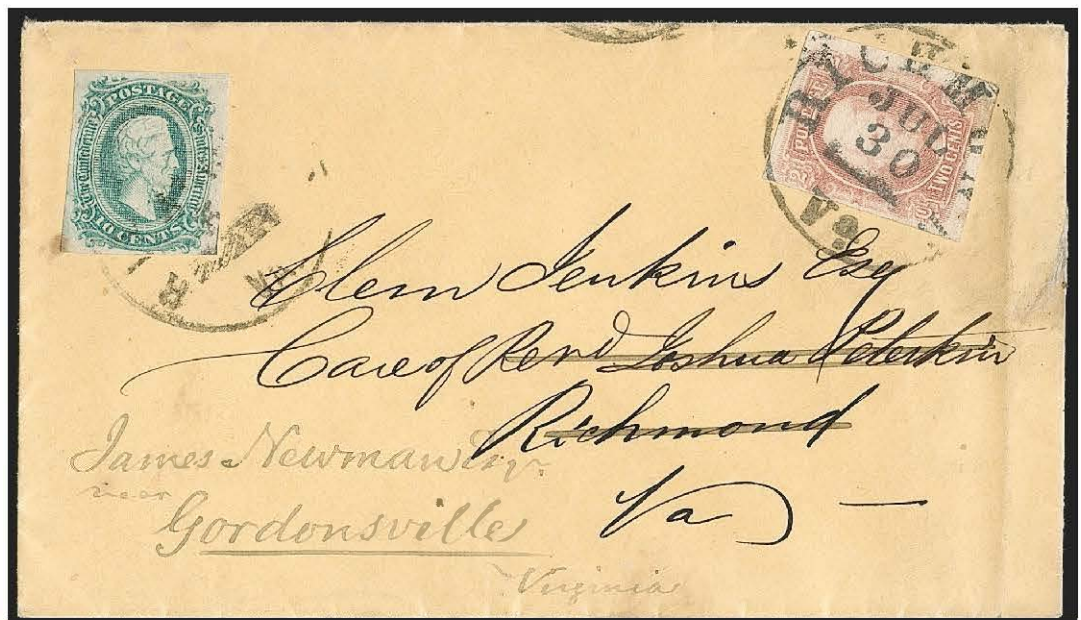 POSTAGE
The Confederate States of America
10 CENTS
RICHMOND
JUL
30
VA.
TWO CENTS
Clem Jenkins Esq
Care of Revd Joshua Peterkin
Richmond
Va
James Newman Esqr
near
Gordonsville
Virginia